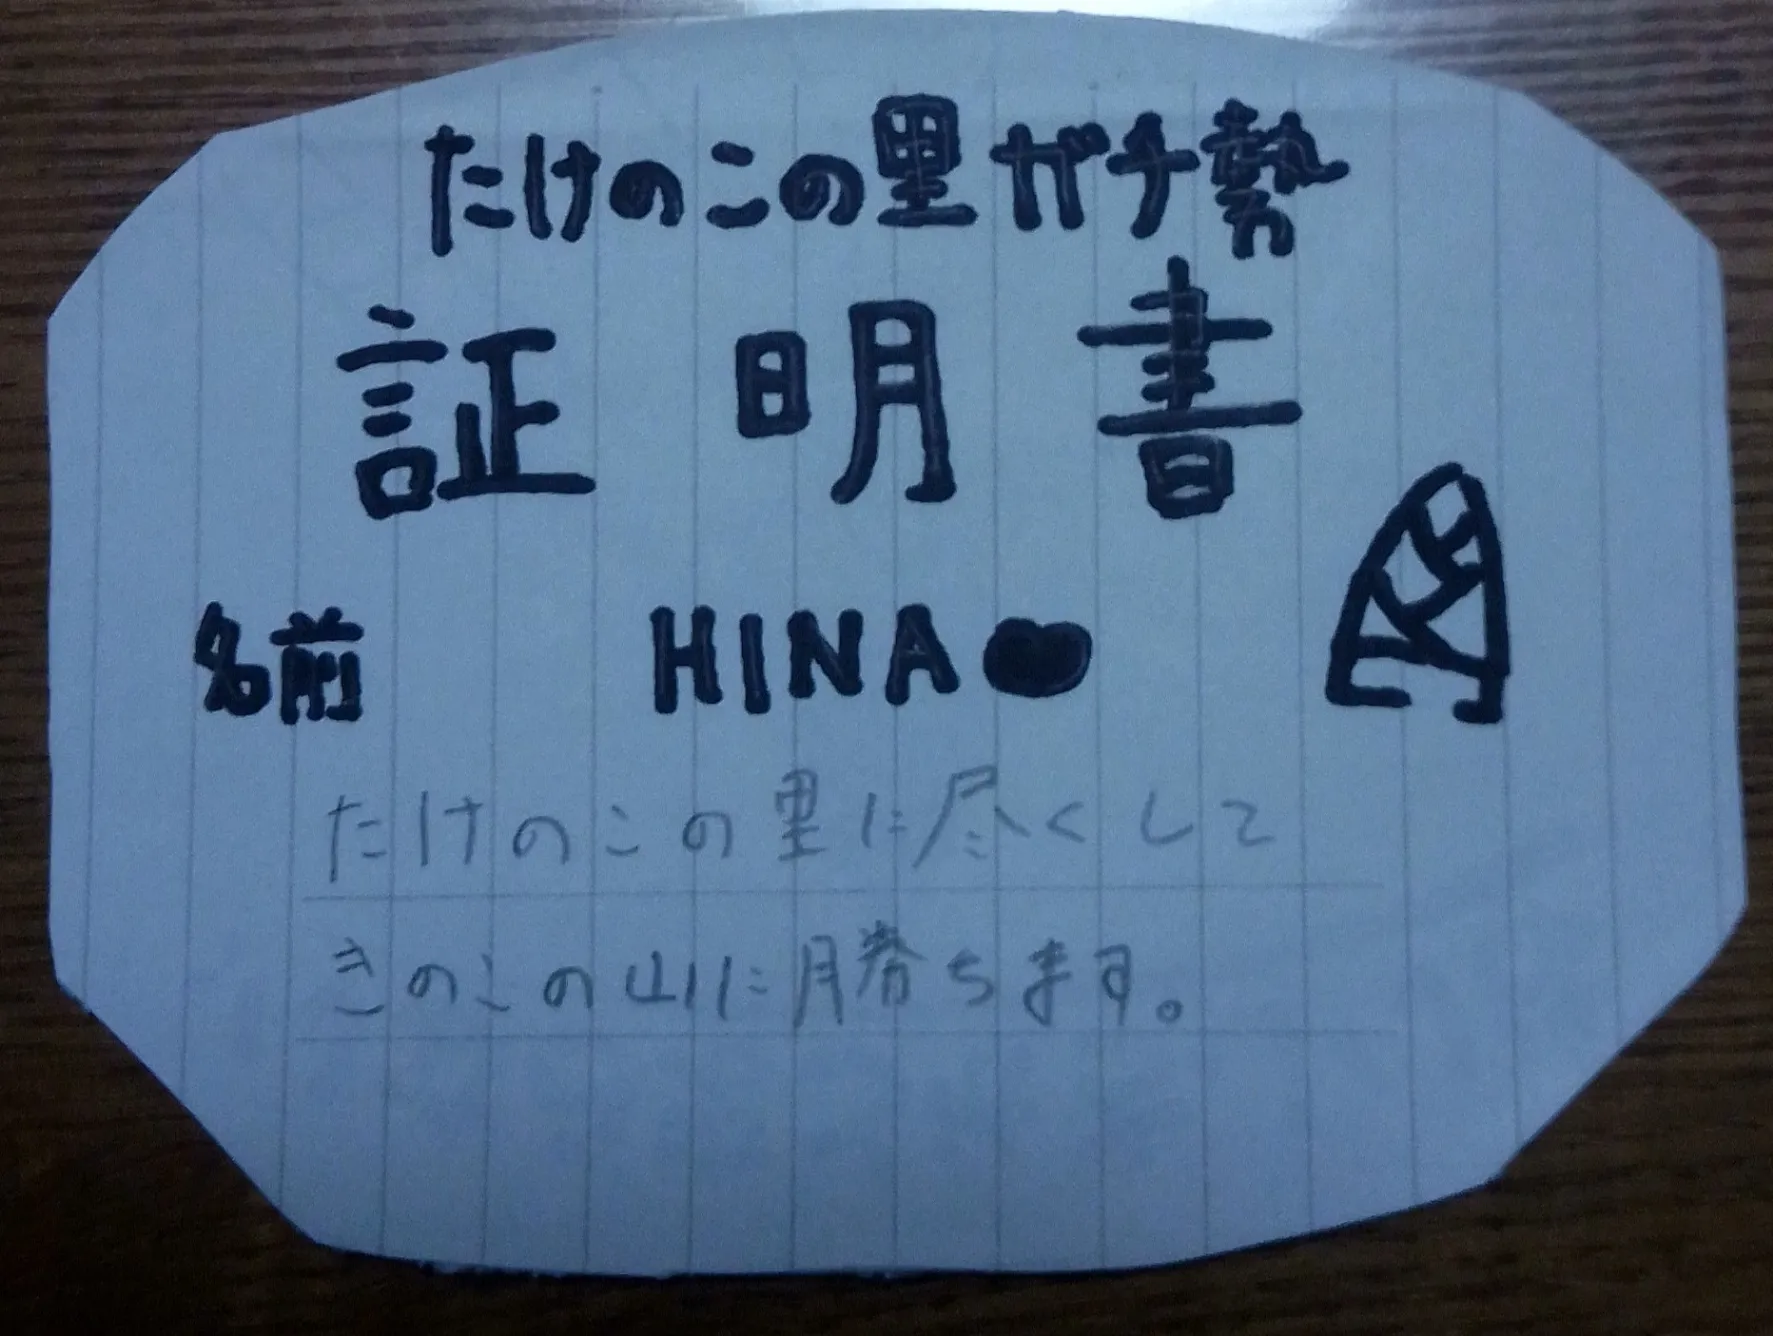 たけのこの里ガチ勢
証明書
名前 HINA
たけのこの里に尽くして
きのこの山に勝ちます。